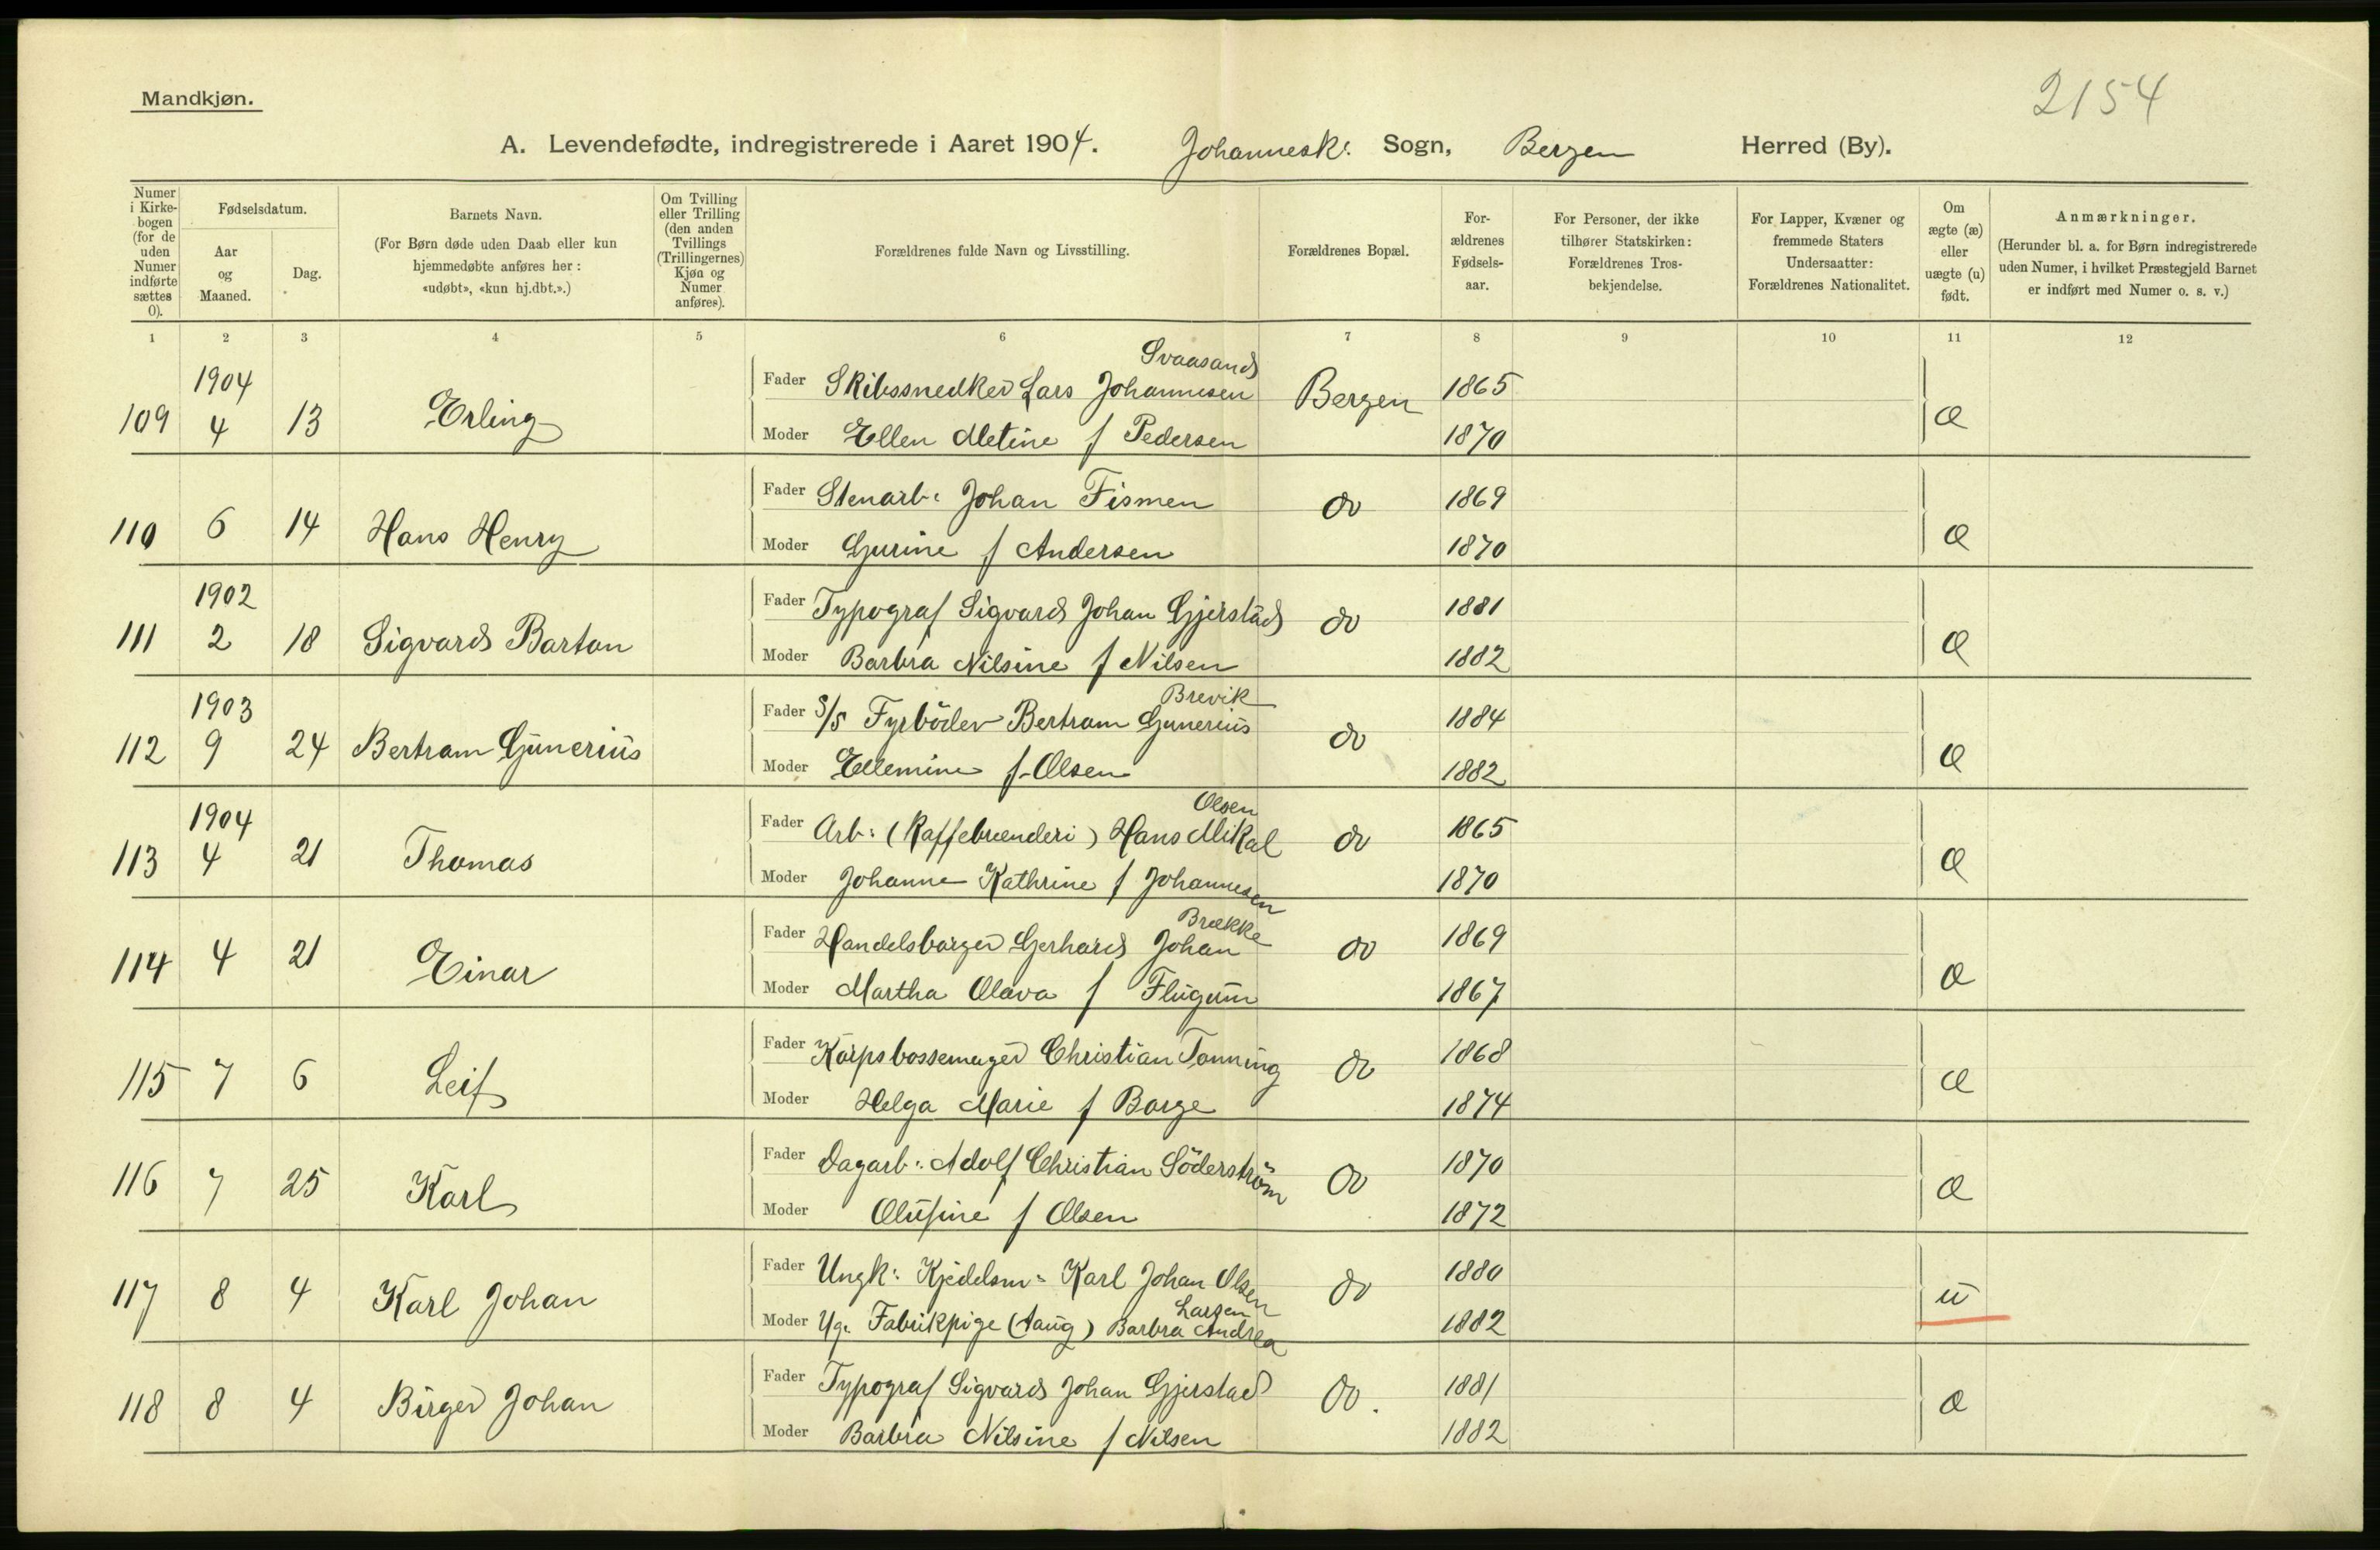 Mandkjøn.
2154
A. Levendefødte, indregistrerede i Aaret 1904. Johannesk: Sogn, Bergen Herred (By).
Numer i Kirkebogen (for de uden Numer indførte sættes 0).
Fødselsdatum.
Aar og Maaned.
Dag.
Barnets Navn.
(For Børn døde uden Daab eller kun hjemmedøbte anføres her: «udøbt», «kun hj.dbt.».)
Om Tvilling eller Trilling (den anden Tvillings (Trillingernes) Kjøn og Numer anføres).
Forældrenes fulde Navn og Livsstilling.
Forældrenes Bopæl.
Forældrenes Fødselsaar.
For Personer, der ikke tilhører Statskirken: Forældrenes Trosbekjendelse.
For Lapper, Kvæner og fremmede Staters Undersaatter: Forældrenes Nationalitet.
Om ægte (æ) eller uægte (u) født.
Anmærkninger.
(Herunder bl. a. for Børn indregistrerede uden Numer, i hvilket Præstegjeld Barnet er indført med Numer o. s. v.)
1 2 3 4 5 6 7 8 9 10 11 12
1904 Svaasand
109 4 13 Erling Fader Skibssnedker Lars Johannesen Bergen 1865 æ
Moder Ellen Metine f Pedersen 1870
110 6 14 Hans Henry Fader Stenarb: Johan Fismen do 1869 æ
Moder Gurine f Andersen 1870
1902
111 2 18 Sigvard Barton Fader Typograf Sigvard Johan Gjerstad do 1881 æ
Moder Barbra Nilsine f Nilsen 1882
1903 Brevik
112 9 24 Bertram Gunerius Fader S/S Fyrböder Bertram Gunerius do 1884 æ
Moder Ellemine f. Olsen 1882
1904 Olsen
113 4 21 Thomas Fader Arb: (Kaffebrænderi) Hans Mikal do 1865 æ
Moder Johanne Kathrine f Johannesen 1870
Brække
114 4 21 Einar Fader Handelsborger Gerhard Johan do 1869 æ
Moder Martha Olava f Flugum 1867
115 7 6 Leif Fader Korpsbossemager Christian Tonning do 1868 æ
Moder Helga Marie f Borge 1874
116 7 25 Karl Fader Dagarb: Adolf Christian Söderström do 1870 æ
Moder Olufine f Olsen 1872
117 8 4 Karl Johan Fader Ungk: Kjedelsm: Karl Johan Olsen do 1880 u
Larsen
Moder Ug. Fabrikpige (Taug) Barbra Andrea 1882
118 8 4 Birger Johan Fader Typograf Sigvard Johan Gjerstad do. 1881 æ
Moder Barbra Nilsine f Nilsen 1882